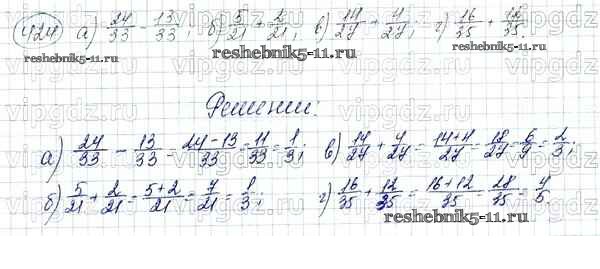 424 а) 24/33 - 13/33; б) 5/21 + 2/21; в) 14/27 + 4/27; г) 16/35 + 12/35.
reshebnik5-11.ru reshebnik5-11.ru
Решении:
а) 24/33 - 13/33 = 24-13/33 = 11/33 = 1/3; в) 14/27 + 4/27 = 14+4/27 = 18/27 = 6/9 = 2/3;
б) 5/21 + 2/21 = 5+2/21 = 7/21 = 1/3; г) 16/35 + 12/35 = 16+12/35 = 28/35 = 4/5.
reshebnik5-11.ru
vipgdz.ru